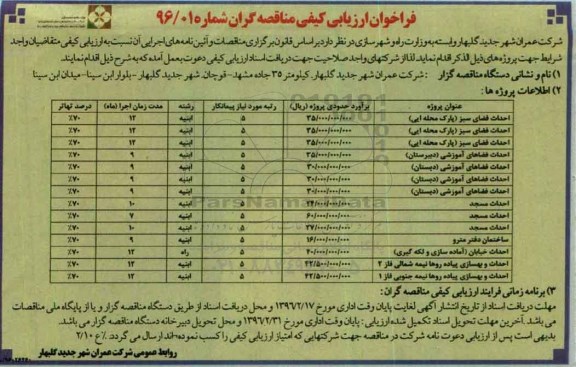 فراخوان ارزیابی کیفی مناقصه گران شماره ۹۶/۰۱
شرکت عمران شهر جدید گلبهار وابسته به وزارت راه و شهرسازی در نظر دارد بر اساس قانون برگزاری مناقصات و آئین نامه های اجرایی آن نسبت به ارزیابی کیفی متقاضیان واجد
شرایط جهت پروژه های ذیل الذکر اقدام نماید. لذا از شرکتهای واجد صلاحیت جهت دریافت اسناد ارزیابی کیفی دعوت بعمل آمده که به شرح ذیل اقدام نمایند.
۱) نام و نشانی دستگاه مناقصه گزار : شرکت عمران شهر جدید گلبهار، کیلومتر ۳۵ جاده مشهد-قوچان، شهر جدید گلبهار - بلوار ابن سینا- میدان ابن سینا
۲) اطلاعات پروژه ها :
عنوان پروژه برآورد حدودی پروژه (ریال) رتبه مورد نیاز پیمانکار رشته مدت زمان اجرا (ماه) درصد تهاتر
احداث فضای سبز (پارک محله ایی) ۳۵/۰۰۰/۰۰۰/۰۰۰ ۵ ابنیه ۱۲ ٪۷۰
احداث فضای سبز (پارک محله ایی) ۳۵/۰۰۰/۰۰۰/۰۰۰ ۵ ابنیه ۱۲ ٪۷۰
احداث فضای سبز (پارک محله ایی) ۳۵/۰۰۰/۰۰۰/۰۰۰ ۵ ابنیه ۱۲ ٪۷۰
احداث فضاهای آموزشی (دبیرستان) ۳۵/۰۰۰/۰۰۰/۰۰۰ ۵ ابنیه ۹ ٪۷۰
احداث فضاهای آموزشی (دبستان) ۳۰/۰۰۰/۰۰۰/۰۰۰ ۵ ابنیه ۹ ٪۷۰
احداث فضاهای آموزشی (دبستان) ۳۰/۰۰۰/۰۰۰/۰۰۰ ۵ ابنیه ۹ ٪۷۰
احداث فضاهای آموزشی (دبستان) ۳۰/۰۰۰/۰۰۰/۰۰۰ ۵ ابنیه ۹ ٪۷۰
احداث مسجد ۵ ابنیه ۱۰ ٪۷۰
احداث مسجد ۶۰/۰۰۰/۰۰۰/۰۰۰ ۵ ابنیه ۷ ٪۷۰
احداث مسجد ۳۷/۰۰۰/۰۰۰/۰۰۰ ۵ ابنیه ۱۰ ٪۷۰
ساختمان دفتر مترو ۱۶/۰۰۰/۰۰۰/۰۰۰ ۵ ابنیه ۹ ٪۷۰
احداث خیابان (آماده سازی و لکه گیری) ۴۰/۰۰۰/۰۰۰/۰۰۰ ۵ راه ۱۲ ٪۷۰
احداث و بهسازی پیاده روها نیمه شمالی فاز ۲ ۴۲/۵۰۰/۰۰۰/۰۰۰ ۵ ابنیه ۱۲ ٪۷۰
احداث و بهسازی پیاده روها نیمه جنوبی فاز ۱ ۴۲/۵۰۰/۰۰۰/۰۰۰ ۵ ابنیه ۱۲ ٪۷۰
۳) برنامه زمانی فرایند ارزیابی کیفی مناقصه گران:
مهلت دریافت اسناد از تاریخ انتشار آگهی لغایت پایان وقت اداری مورخ ۱۳۹۶/۲/۱۷ و محل دریافت اسناد از طریق دستگاه مناقصه گزار و یا از پایگاه ملی مناقصات
می باشد. آخرین مهلت تحویل اسناد تکمیل شده ارزیابی: پایان وقت اداری مورخ ۱۳۹۶/۲/۳۱ و محل تحویل دبیرخانه دستگاه مناقصه گزار می باشد.
بدیهی است پس از ارزیابی دعوت نامه شرکت در مناقصه جهت شرکتهایی که امتیاز ارزیابی کیفی را کسب نموده اند ارسال می گردد. خ/ ۲/۱۰
روابط عمومی شرکت عمران شهر جدید گلبهار
ParsNamadData